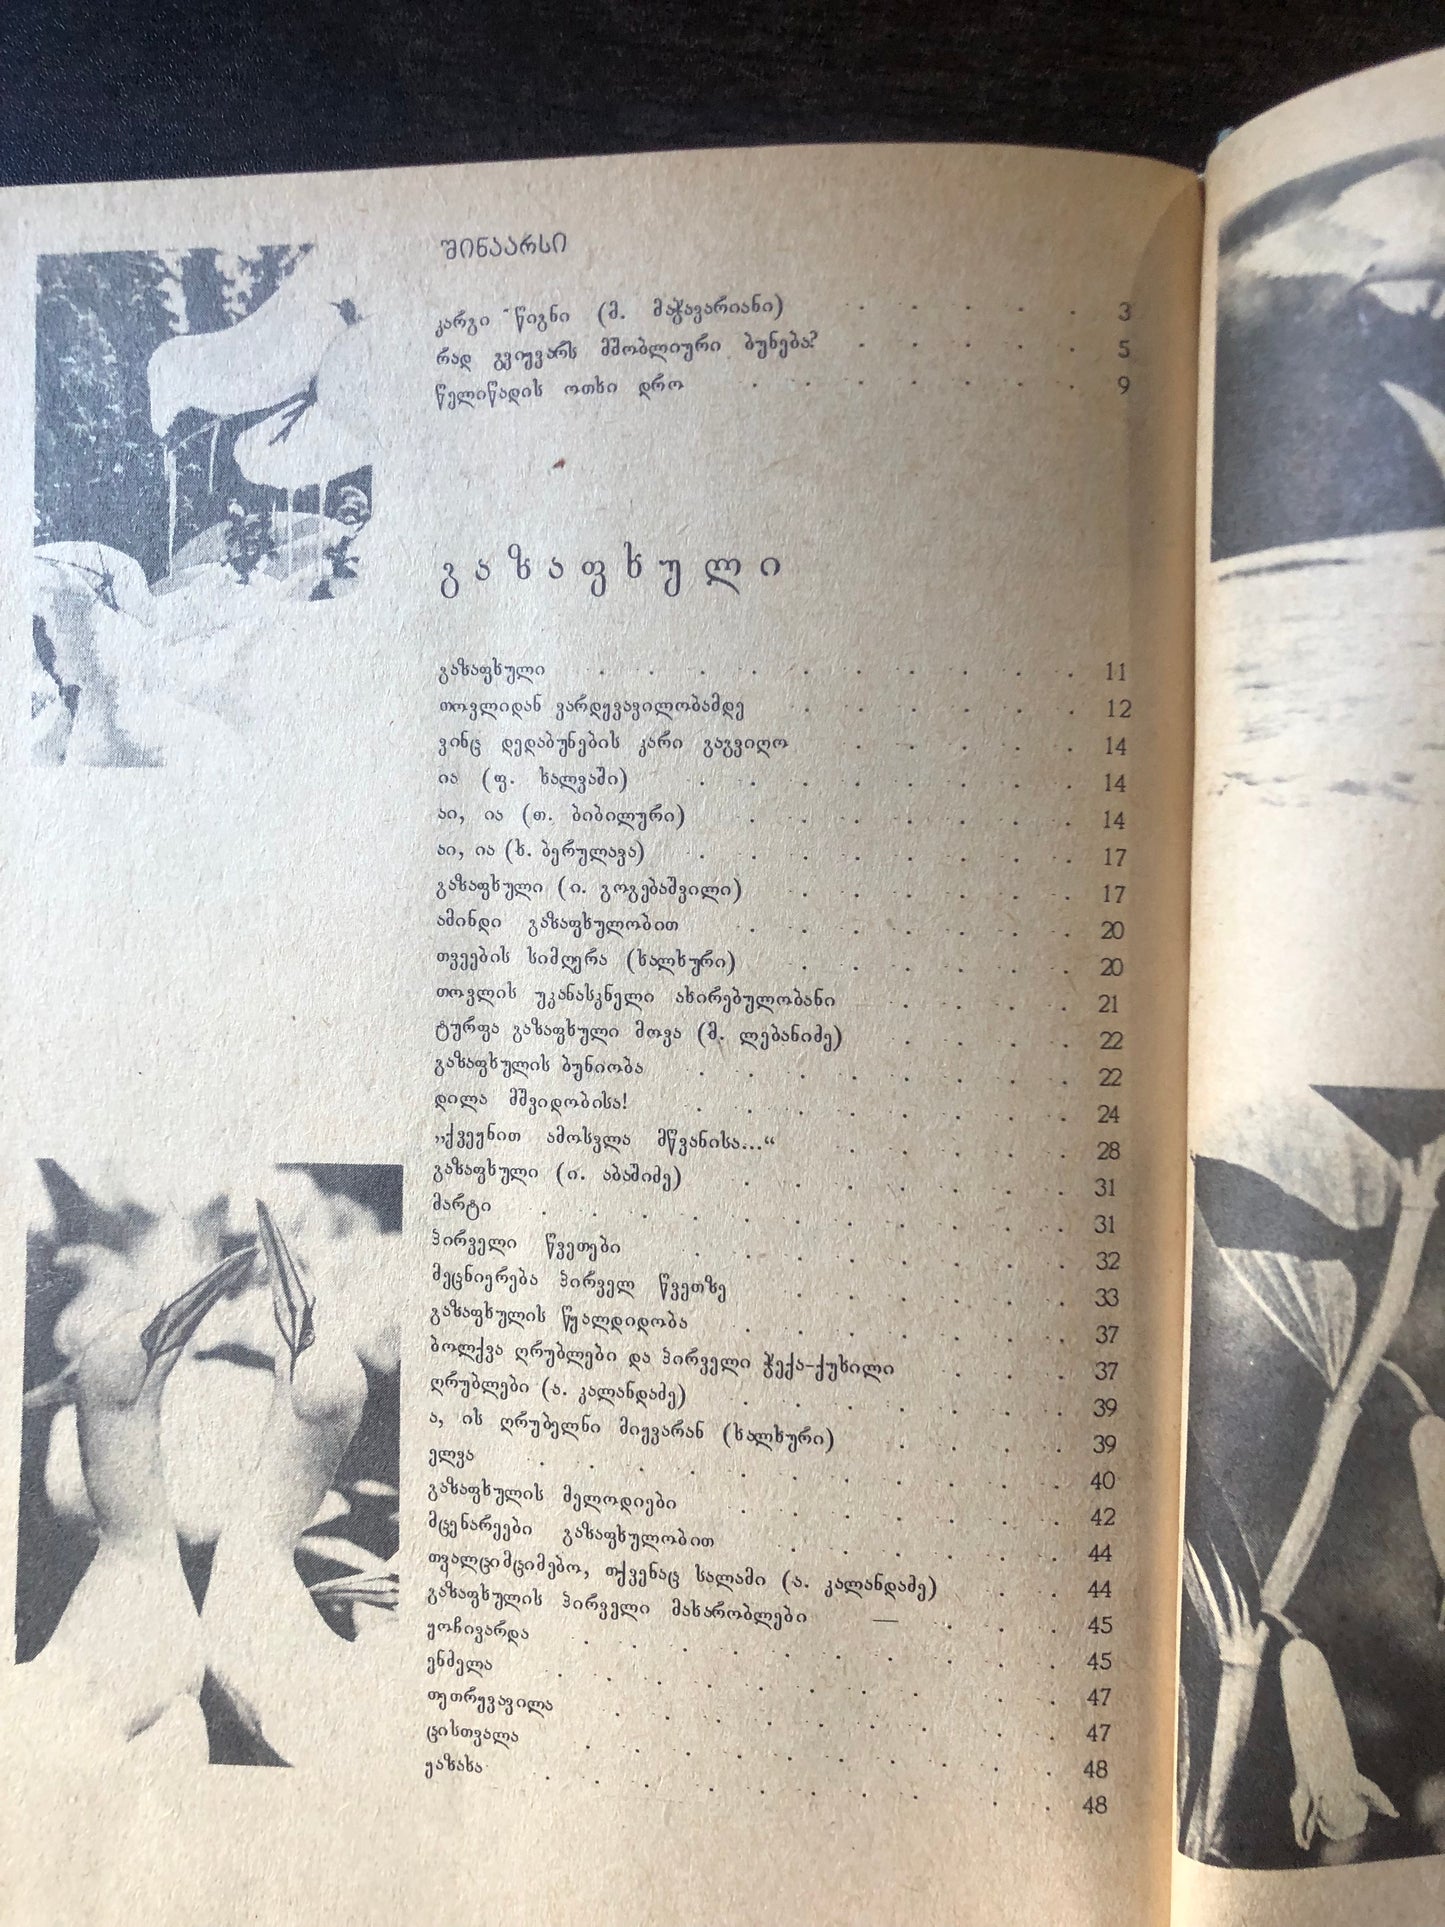 შინაარსი
კარგი წიგნი (მ. მაჭავარიანი) . . . . . 3
რად გვიყვარს მშობლიური ბუნება? . . . . . 5
წელიწადის ოთხი დრო . . . . . . . 9
გაზაფხული
გაზაფხული . . . . . . . . . . 11
თოვლიდან ვარდყვავილობამდე . . . . . . 12
ვინც დედაბუნების კარი გაგვიღო . . . . . 14
ია (ფ. ხალვაში) . . . . . . . . 14
აი, ია (თ. ბიბილური) . . . . . . . 14
აი, ია (ხ. ბერულავა) . . . . . . . . 17
გაზაფხული (ი. გოგებაშვილი) . . . . . . 17
ამინდი გაზაფხულობით . . . . . . . 20
თვეების სიმღერა (ხალხური) . . . . . . 20
თოვლის უკანასკნელი ახირებულობანი . . . . 21
ტურფა გაზაფხული მოვა (მ. ლებანიძე) . . . . 22
გაზაფხულის ბუნიობა . . . . . . . . 22
დილა მშვიდობისა! . . . . . . . . 24
„ქვეყნით ამოსვლა მწვანისა...“ . . . . . 28
გაზაფხული (ი. აბაშიძე) . . . . . . . 31
მარტი . . . . . . . . . . . 31
პირველი წვეთები . . . . . . . . 32
მეცნიერება პირველ წვეთზე . . . . . . 33
გაზაფხულის წყალდიდობა . . . . . . . 37
ბოლქვა ღრუბლები და პირველი ჭექა-ქუხილი . . . 37
ღრუბლები (ა. კალანდაძე) . . . . . . . 39
ა, ის ღრუბელნი მიყვარან (ხალხური) . . . . 39
ელვა . . . . . . . . . . . 40
გაზაფხულის მელოდიები . . . . . . . 42
მცენარეები გაზაფხულობით . . . . . . 44
თვალციმციმებო, თქვენაც სალამი (ა. კალანდაძე) . . 44
გაზაფხულის პირველი მახარობლები — . . . 45
ყოჩივარდა . . . . . . . . . . 45
ენძელა . . . . . . . . . . 47
თეთრყვავილა . . . . . . . . . 47
ცისთვალა . . . . . . . . . . 48
ყაზახა . . . . . . . . . . . 48